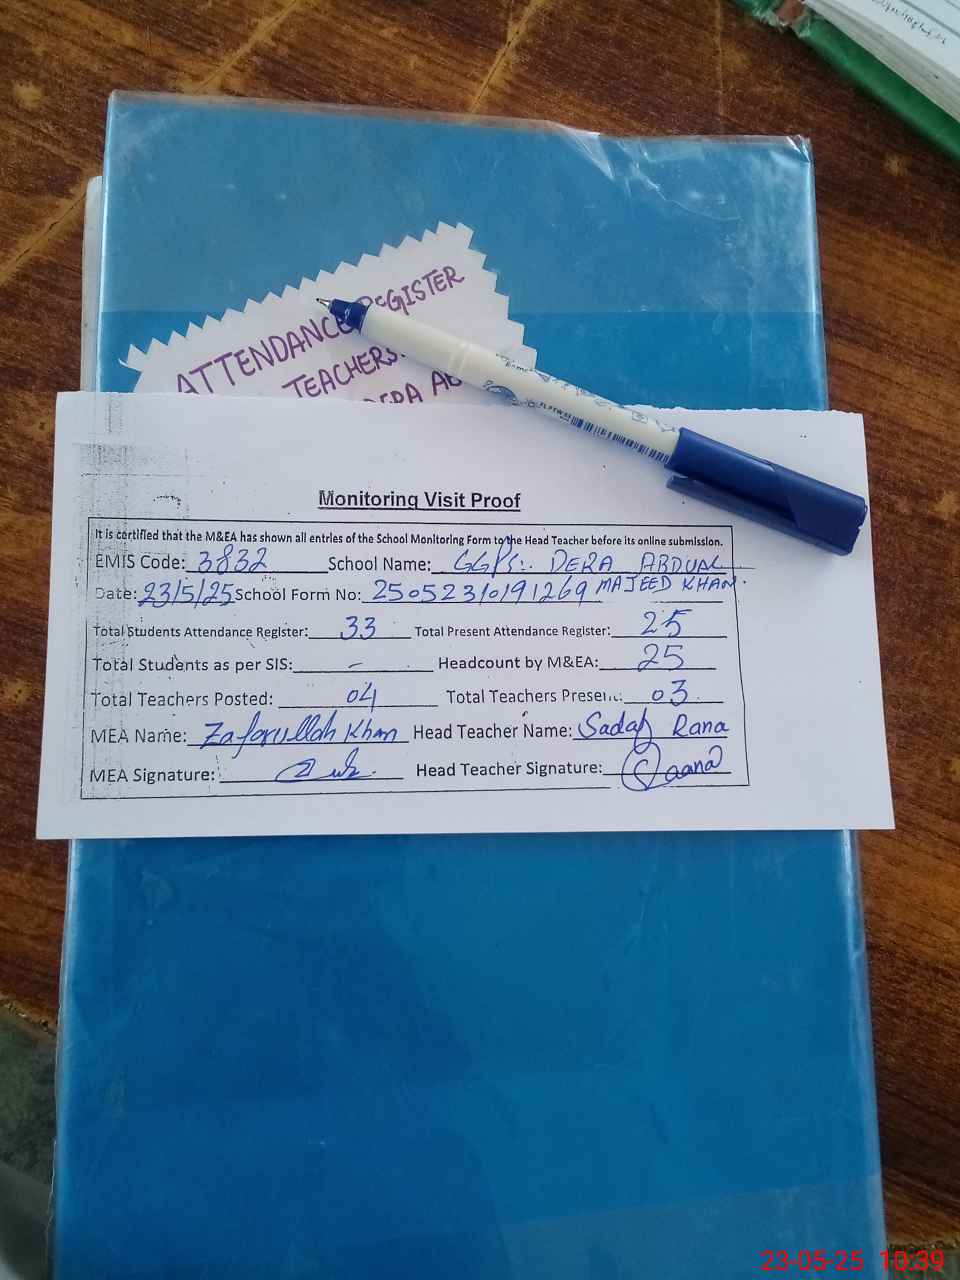 ATTENDANCE REGISTER
TEACHERS.
DERA AB
FLYTWAY
Monitoring Visit Proof
It is certified that the M&EA has shown all entries of the School Monitoring Form to the Head Teacher before its online submission.
EMIS Code: 3832 School Name: GGPS. DERA ABDUAL
Date: 23/5/25 School Form No: 2505231019 1269 MAJEED KHAN.
Total Students Attendance Register: 33 Total Present Attendance Register: 25
Total Students as per SIS: - Headcount by M&EA: 25
Total Teachers Posted: 04 Total Teachers Present: 03
MEA Name: Zafarullah Khan Head Teacher Name: Sadaf Rana
MEA Signature: Head Teacher Signature: Raana
23-05-25 10:39